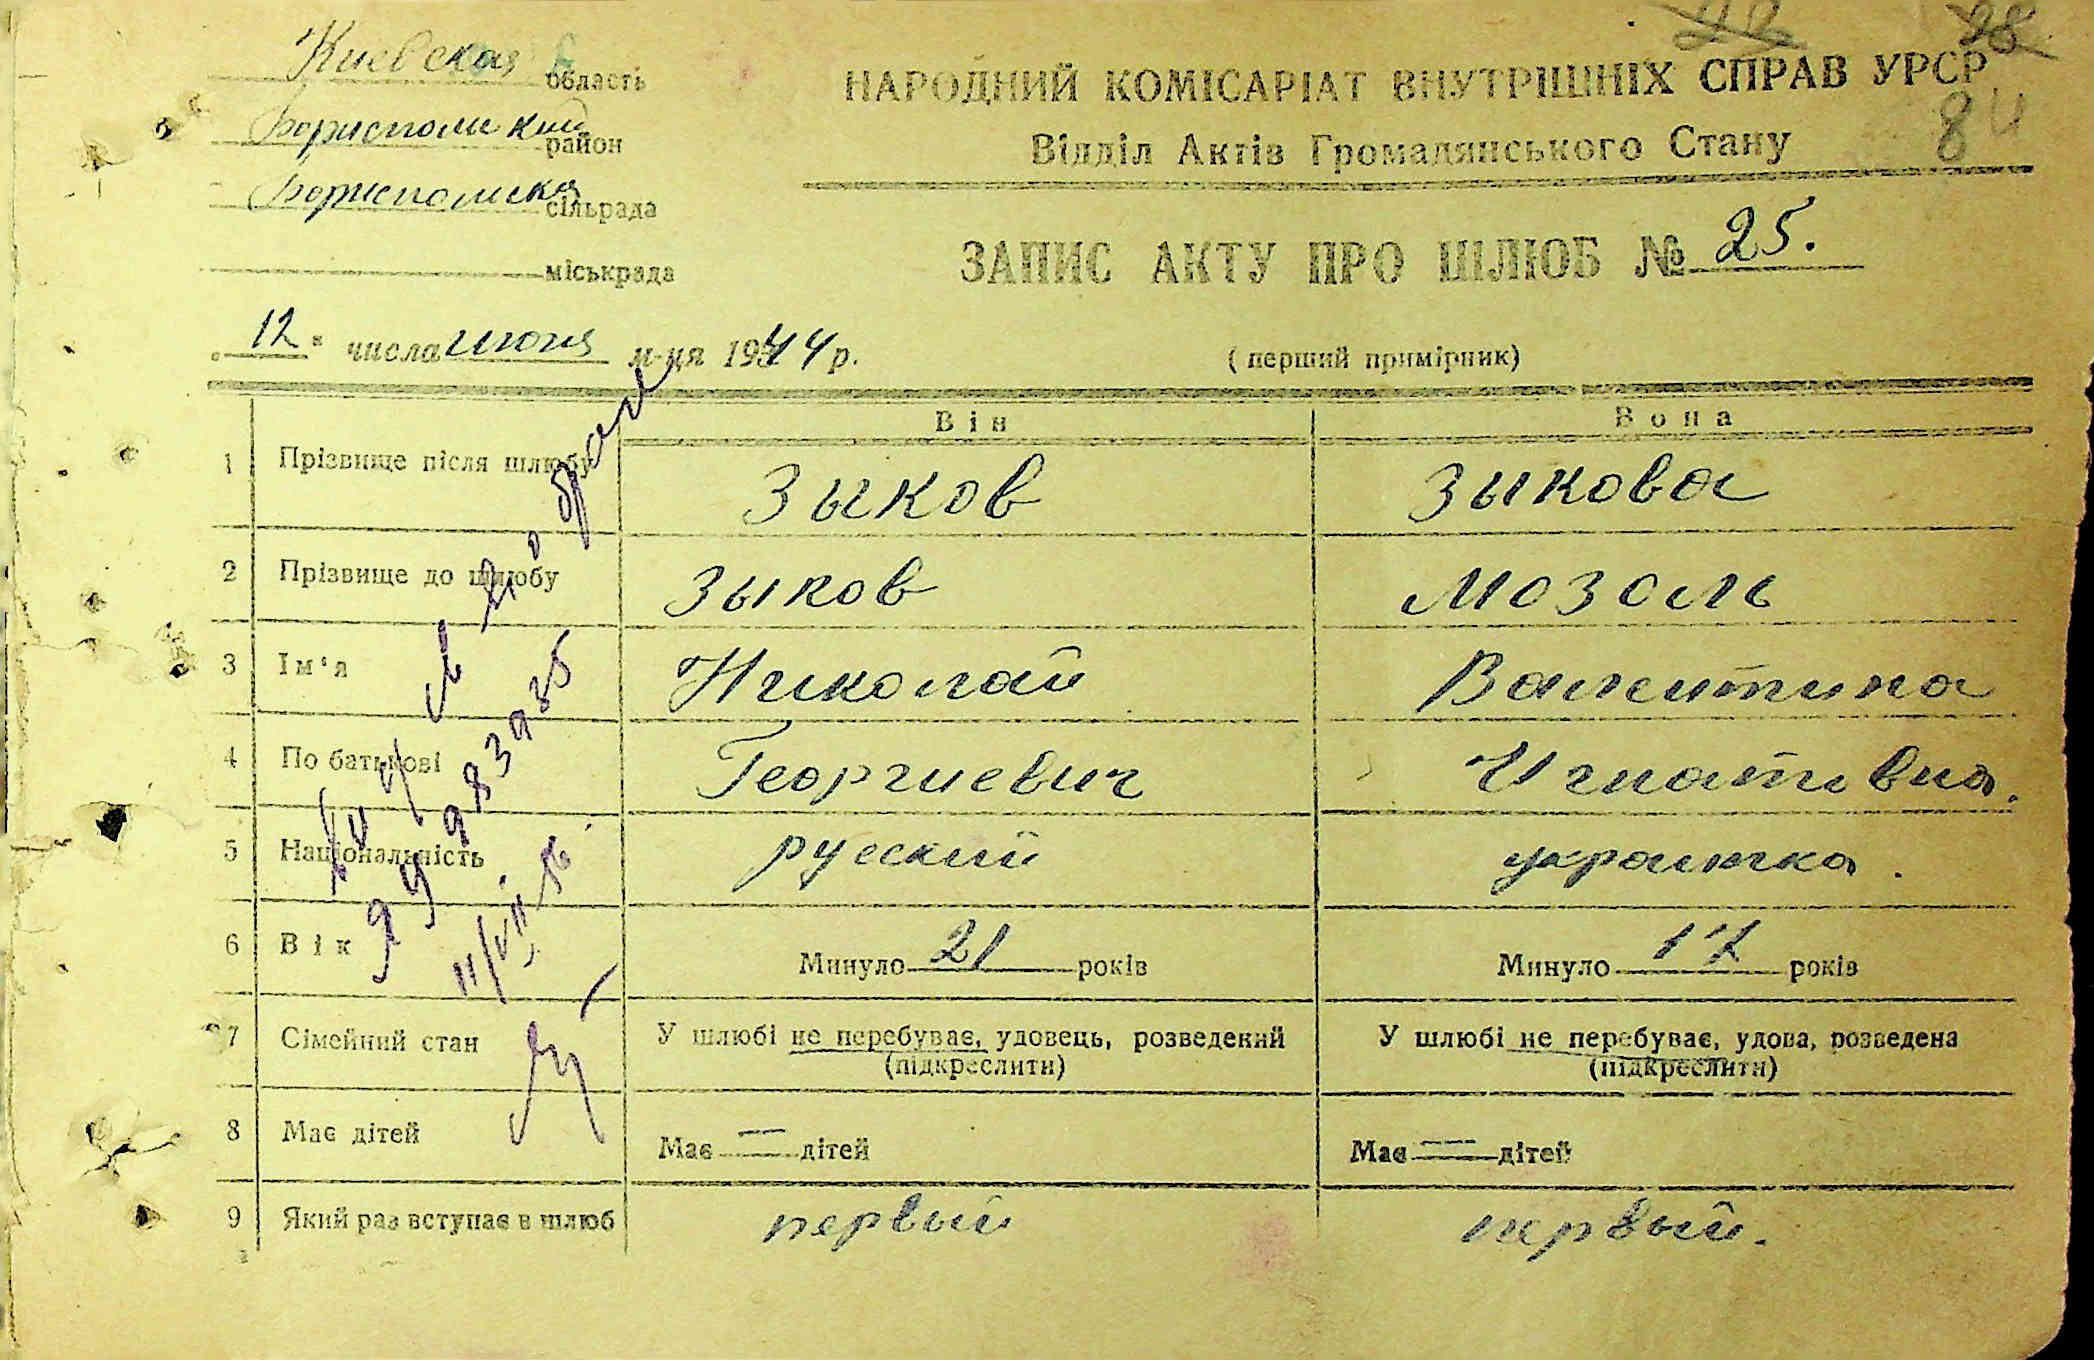 Киевская область
Бориспольский район
Бориспольская сільрада
міськрада
НАРОДНИЙ КОМІСАРІАТ ВНУТРІШНІХ СПРАВ УРСР
Відділ Актів Громадянського Стану
ЗАПИС АКТУ ПРО ШЛЮБ № 25.
"12" числа июня м-ця 1944 р.
(перший примірник)
Він Вона
1 Прізвище після шлюбу Зыков Зыкова
2 Прізвище до шлюбу Зыков Мозоль
3 Ім'я Николай Валентина
4 По батькові Георгиевич Игнативна.
5 Національність русский украинка.
6 Вік Минуло 21 років Минуло 17 років
7 Сімейний стан У шлюбі не перебуває, удовець, розведений У шлюбі не перебуває, удова, розведена
(підкреслити) (підкреслити)
8 Має дітей Має — дітей Має — дітей
9 Який раз вступає в шлюб первый первый.